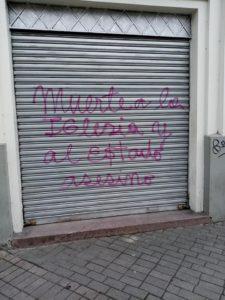 Muerte a la
Iglesia y
al E$tado
asesino